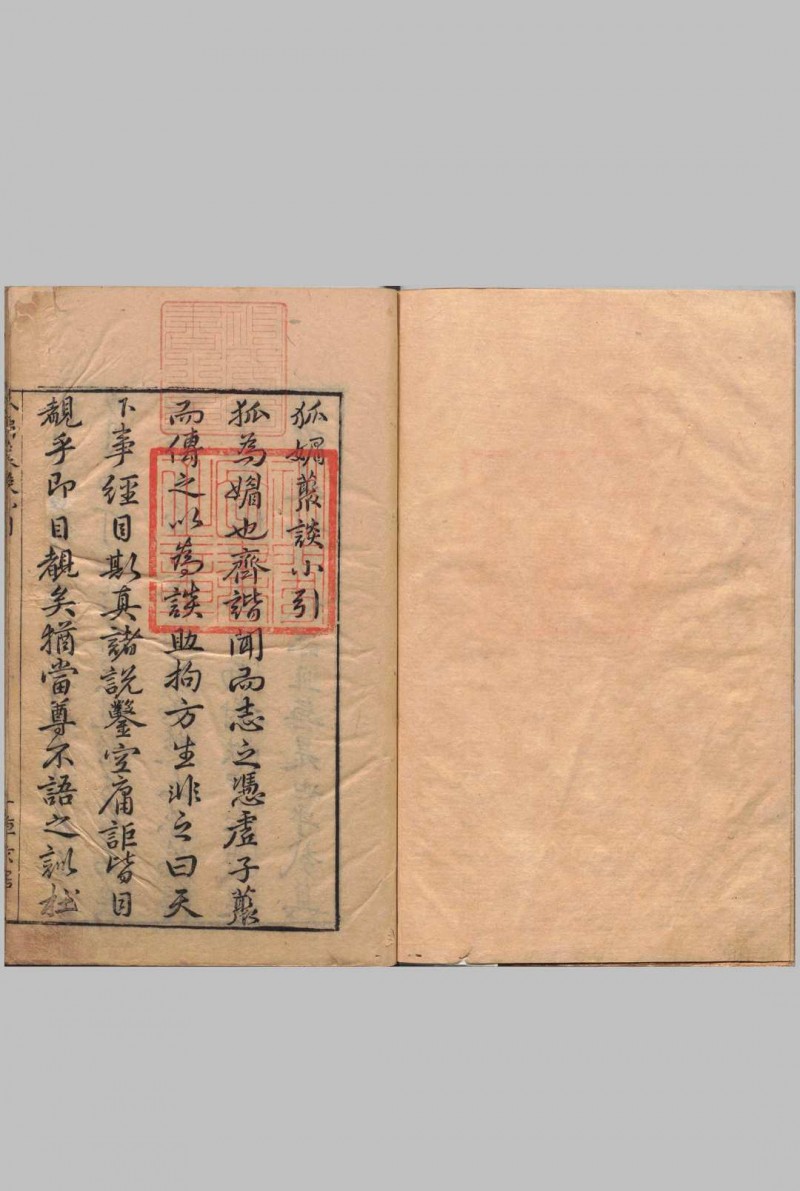 狐媚叢談小引
狐為媚也齊諧聞而志之憑虛子叢
而傳之以為談助拘方生非之曰天
下事經目斯真諸說鑿空庸詎皆目
覩乎即目覩矣猶當尊不語之訓